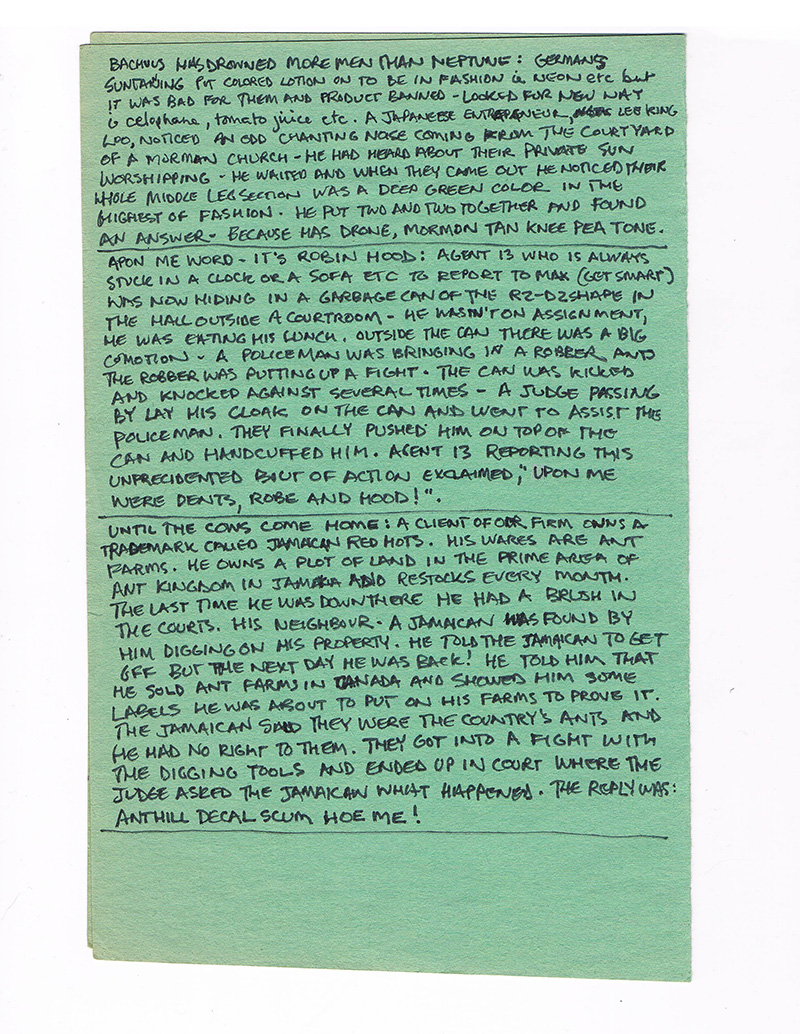 BACHUUS HAS DROWNED MORE MEN THAN NEPTUNE: GERMANS
SUNTANING PUT COLORED LOTION ON TO BE IN FASHION ie NEON etc but
IT WAS BAD FOR THEM AND PRODUCT BANNED - LOOKED FOR NEW WAY
ie celophane, tomato juice etc. A JAPANEESE ENTREPRENEUR, LEE KING
LOO, NOTICED AN ODD CHANTING NOISE COMING FROM THE COURTYARD
OF A MORMAN CHURCH - HE HAD HEARD ABOUT THEIR PRIVATE SUN
WORSHIPPING - HE WAITED AND WHEN THEY CAME OUT HE NOTICED THEIR
WHOLE MIDDLE LEG SECTION WAS A DEEP GREEN COLOR IN THE
HIGHEST OF FASHION. HE PUT TWO AND TWO TOGETHER AND FOUND
AN ANSWER - BECAUSE HAS DRONE, MORMON TAN KNEE PEA TONE.
APON ME WORD - IT'S ROBIN HOOD: AGENT 13 WHO IS ALWAYS
STUCK IN A CLOCK OR A SOFA ETC TO REPORT TO MAX (GET SMART)
WAS NOW HIDING IN A GARBAGE CAN OF THE R2-D2 SHAPE IN
THE HALL OUTSIDE A COURTROOM - HE WASN'T ON ASSIGNMENT,
HE WAS EATING HIS LUNCH. OUTSIDE THE CAN THERE WAS A BIG
COMOTION - A POLICEMAN WAS BRINGING IN A ROBBER AND
THE ROBBER WAS PUTTING UP A FIGHT. THE CAN WAS KICKED
AND KNOCKED AGAINST SEVERAL TIMES - A JUDGE PASSING
BY LAY HIS CLOAK ON THE CAN AND WENT TO ASSIST THE
POLICEMAN. THEY FINALLY PUSHED HIM ON TOP OF THE
CAN AND HANDCUFFED HIM. AGENT 13 REPORTING THIS
UNPRECIDENTED BOUT OF ACTION EXCLAIMED, "UPON ME
WERE DENTS, ROBE AND HOOD!".
UNTIL THE COWS COME HOME: A CLIENT OF OUR FIRM OWNS A
TRADEMARK CALLED JAMACAN RED HOTS. HIS WARES ARE ANT
FARMS. HE OWNS A PLOT OF LAND IN THE PRIME AREA OF
ANT KINGDOM IN JAMAKA AND RESTOCKS EVERY MONTH.
THE LAST TIME HE WAS DOWN THERE HE HAD A BRUSH IN
THE COURTS. HIS NEIGHBOUR - A JAMAICAN WAS FOUND BY
HIM DIGGING ON HIS PROPERTY. HE TOLD THE JAMAICAN TO GET
OFF BUT THE NEXT DAY HE WAS BACK! HE TOLD HIM THAT
HE SOLD ANT FARMS IN CANADA AND SHOWED HIM SOME
LABELS HE WAS ABOUT TO PUT ON HIS FARMS TO PROVE IT.
THE JAMAICAN SAID THEY WERE THE COUNTRY'S ANTS AND
HE HAD NO RIGHT TO THEM. THEY GOT INTO A FIGHT WITH
THE DIGGING TOOLS AND ENDED UP IN COURT WHERE THE
JUDGE ASKED THE JAMAICAN WHAT HAPPENED. THE REPLY WAS:
ANTHILL DECAL SCUM HOE ME!